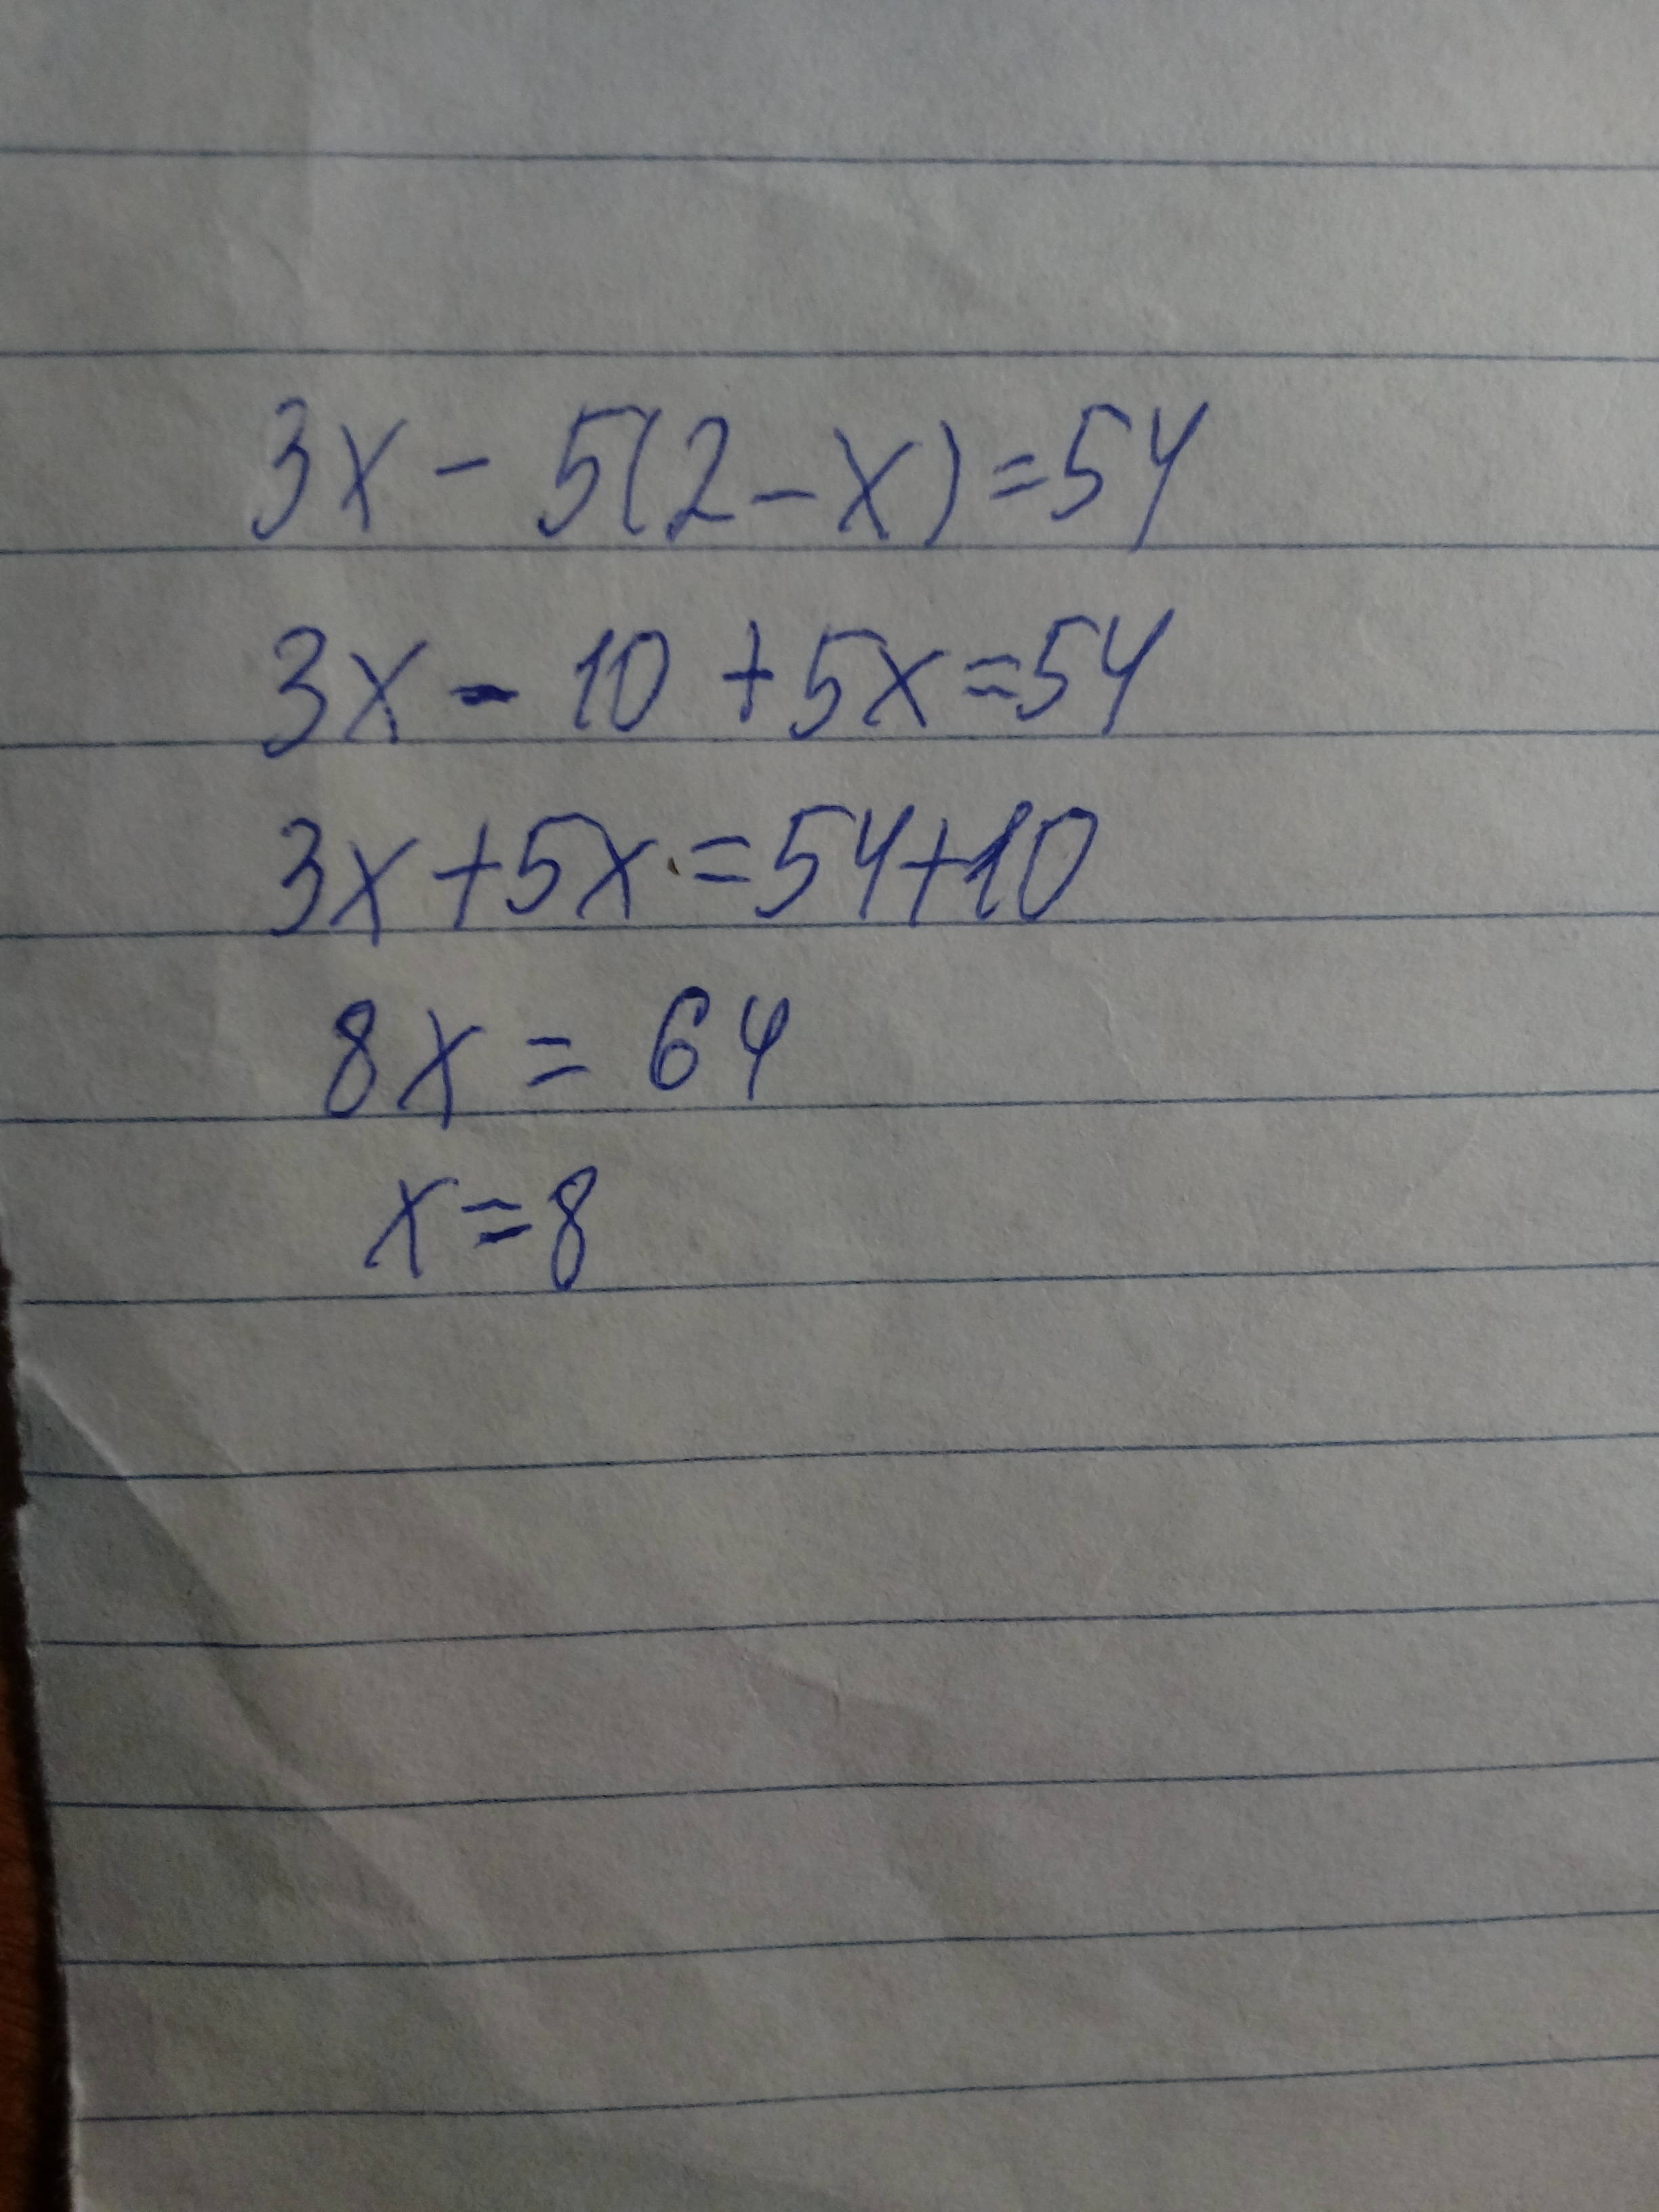 3x - 5(2 - x) = 54
3x - 10 + 5x = 54
3x + 5x = 54 + 10
8x = 64
x = 8